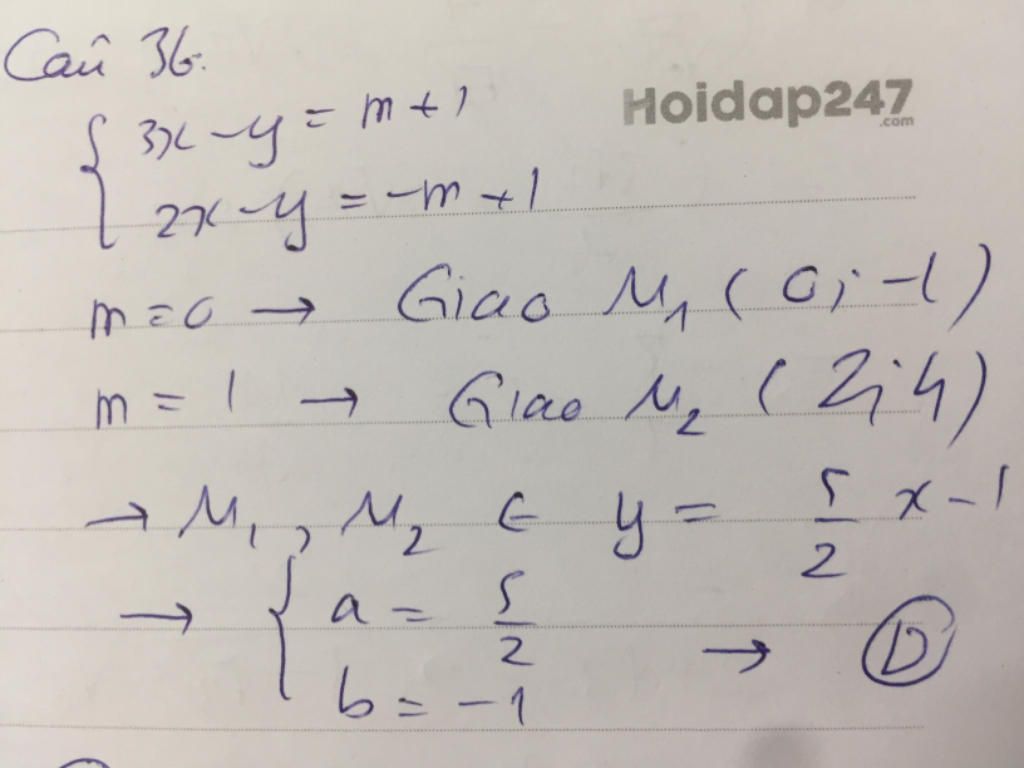 Câu 36.
Hoidap247
.com
{ 3x - y = m + 1
2x - y = -m + 1
m = 0 → Giao M₁ ( 0; -1 )
m = 1 → Giao M₂ ( 2; 4 )
→ M₁, M₂ ∈ y = 5/2 x - 1
→ { a = 5/2
b = -1 → D